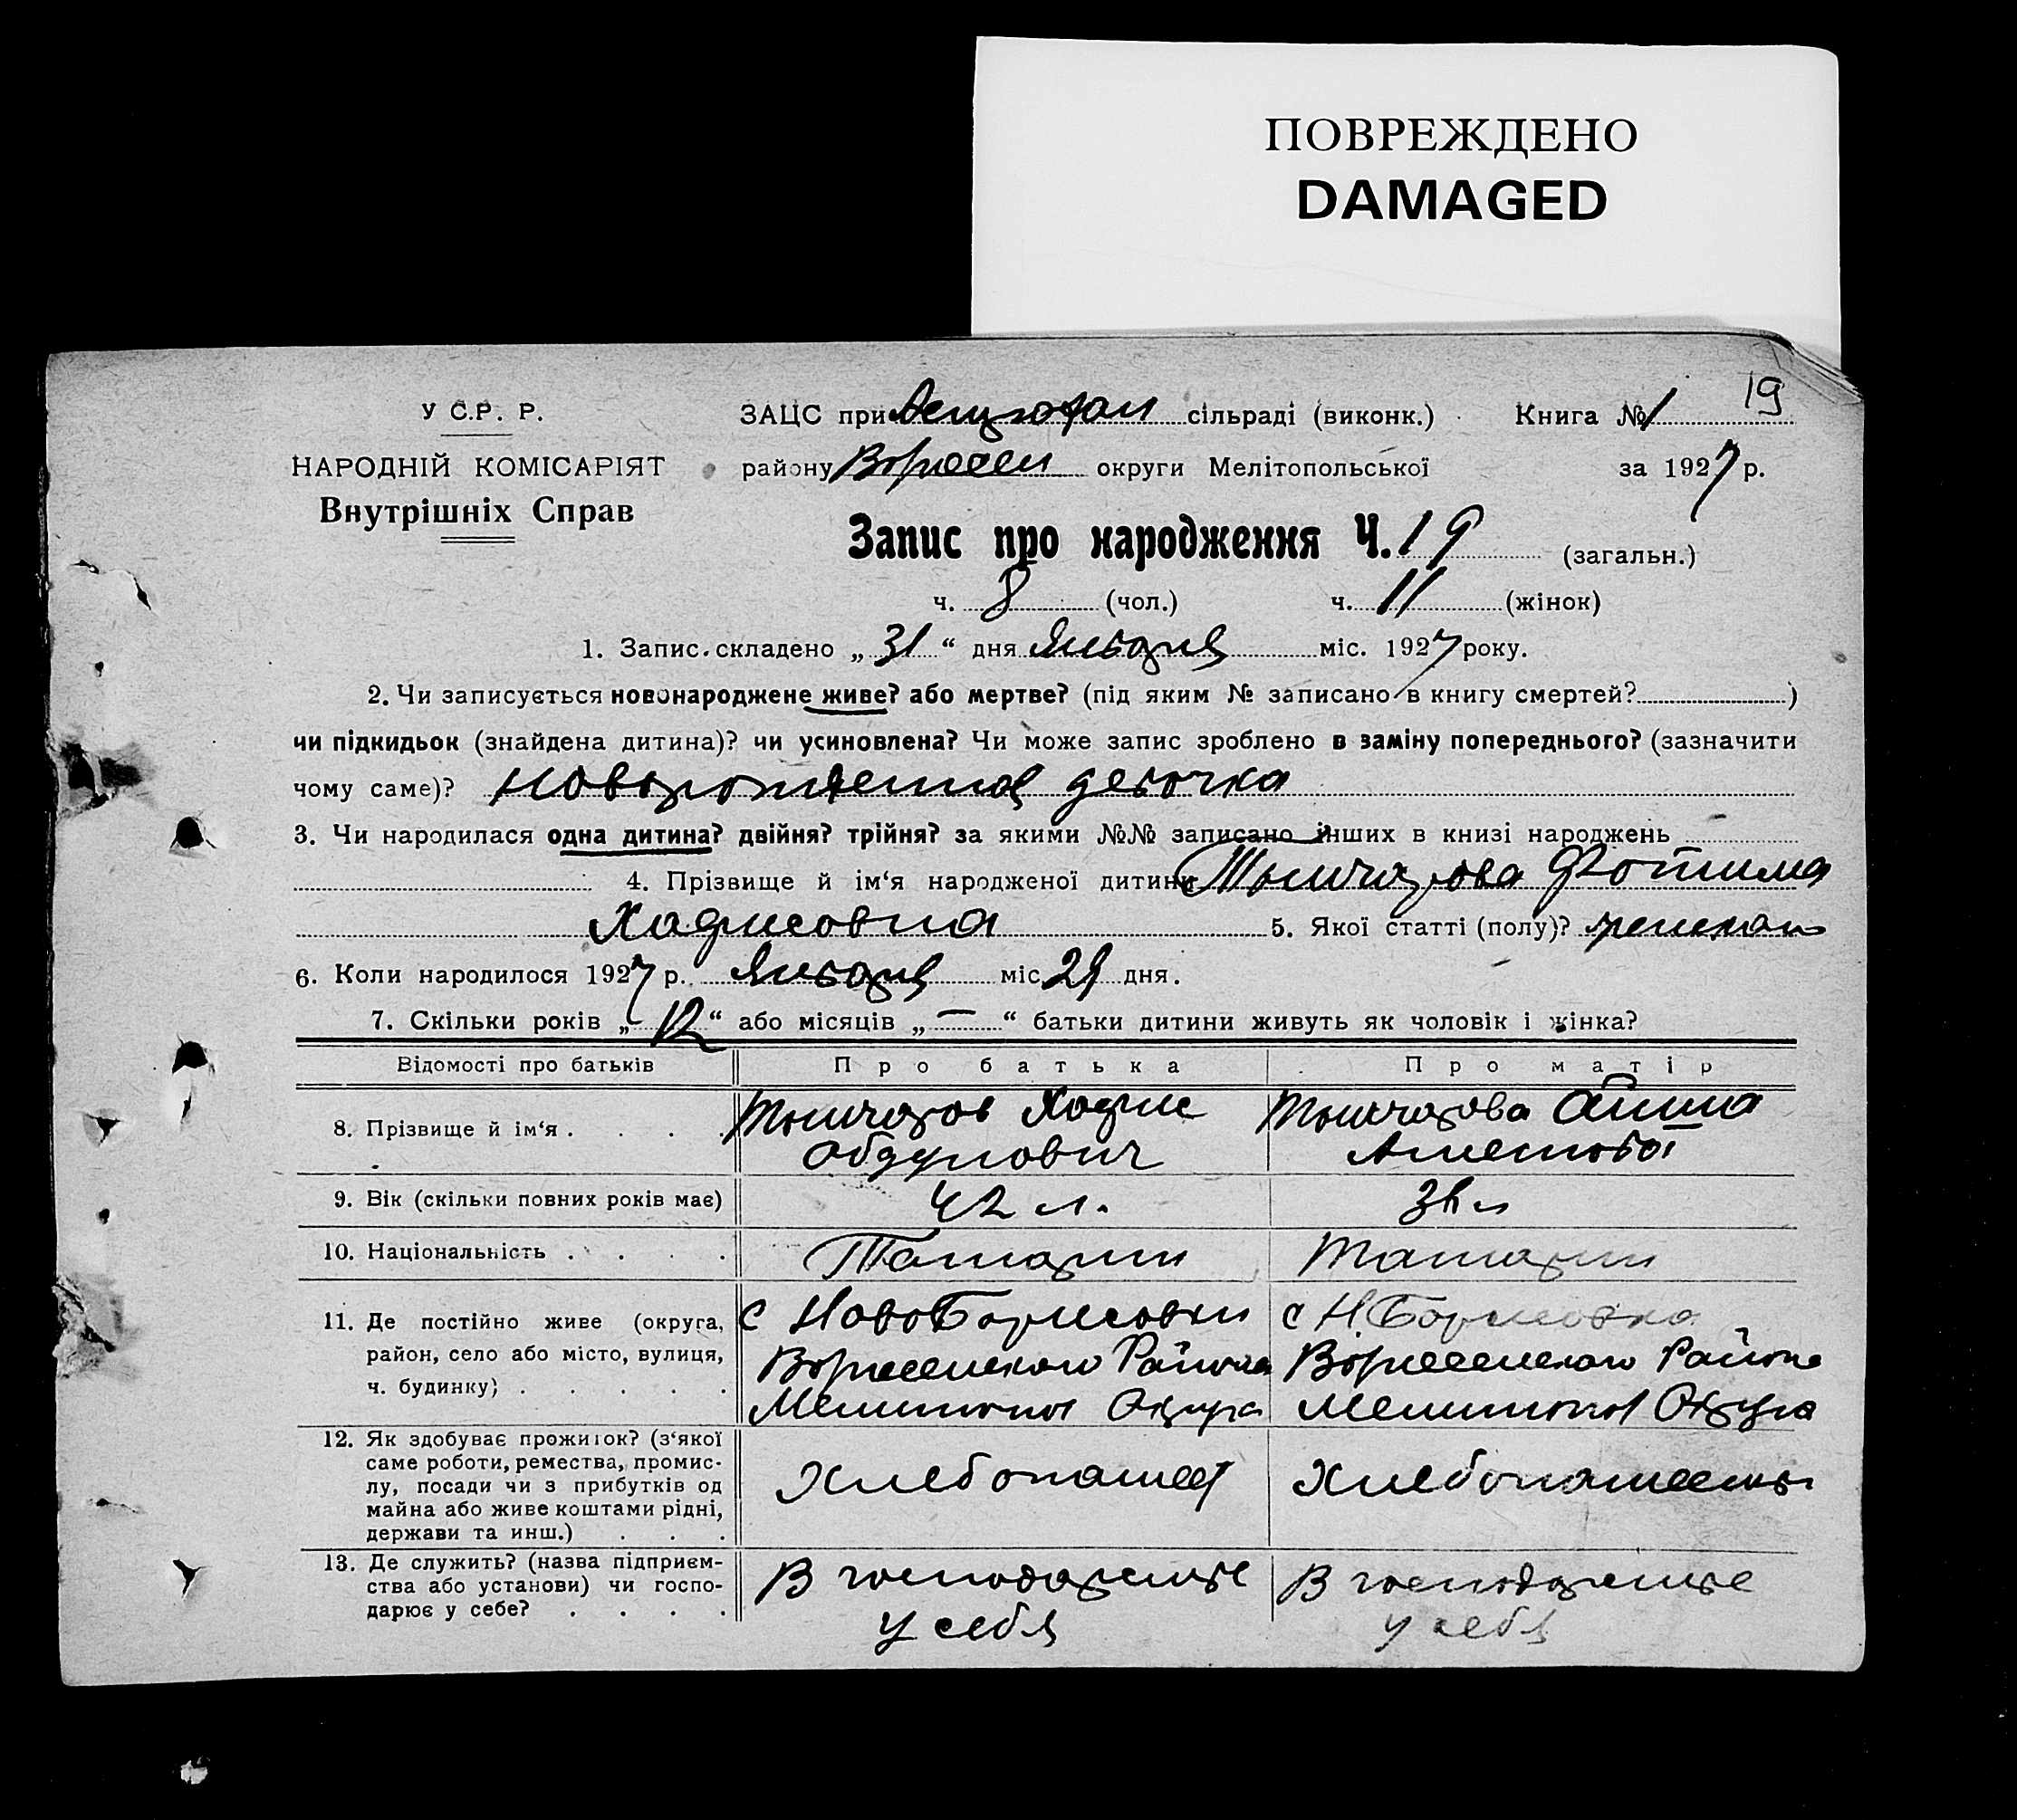 ПОВРЕЖДЕНО
DAMAGED
19
У С.Р. Р.
НАРОДНІЙ КОМІСАРІЯТ
Внутрішніх Справ
ЗАЦС при сільраді (виконк.) Книга № 1
району округи Мелітопольської за 1927 р.
Запис про народження Ч. 19 (загальн.)
ч. 8 (чол.) ч. 11 (жінок)
1. Запис складено „31“ дня Января міс. 1927 року.
2. Чи записується новонароджене живе? або мертве? (під яким № записано в книгу смертей?)
чи підкидьок (знайдена дитина)? чи усиновлена? Чи може запис зроблено в заміну попереднього? (зазначити
чому саме)? Новорожденная девочка
3. Чи народилася одна дитина? двійня? трійня? за якими №№ записано інших в книзі народжень
4. Прізвище й ім‘я народженої дитини Тынчарова Фотима
Хадисовна 5. Якої статті (полу)?
6. Коли народилося 1927 р. Января міс. 29 дня.
7. Скільки років „12“ або місяців „—“ батьки дитини живуть як чоловік і жінка?
Відомості про батьків Про батька Про матір
8. Прізвище й ім‘я Тынчаров Хадис Тынчарова Айша
Абдулович
9. Вік (скільки повних років має) 42 л. 36 л
10. Національність Татарин Татарин
11. Де постійно живе (округа, с НовоБорисовки с Н Борисовка
район, село або місто, вулиця, Района Района
ч. будинку) Мелитопол Округа Мелитопол Округа
12. Як здобуває прожиток? (з‘якої
саме роботи, ремества, промис-
лу, посади чи з прибутків од Хлебопашест Хлебопашеством
майна або живе коштами рідні,
держави та инш.)
13. Де служить? (назва підприєм-
ства або установи) чи госпо- В господарстве В господарстве
дарює у себе? у себя у себя